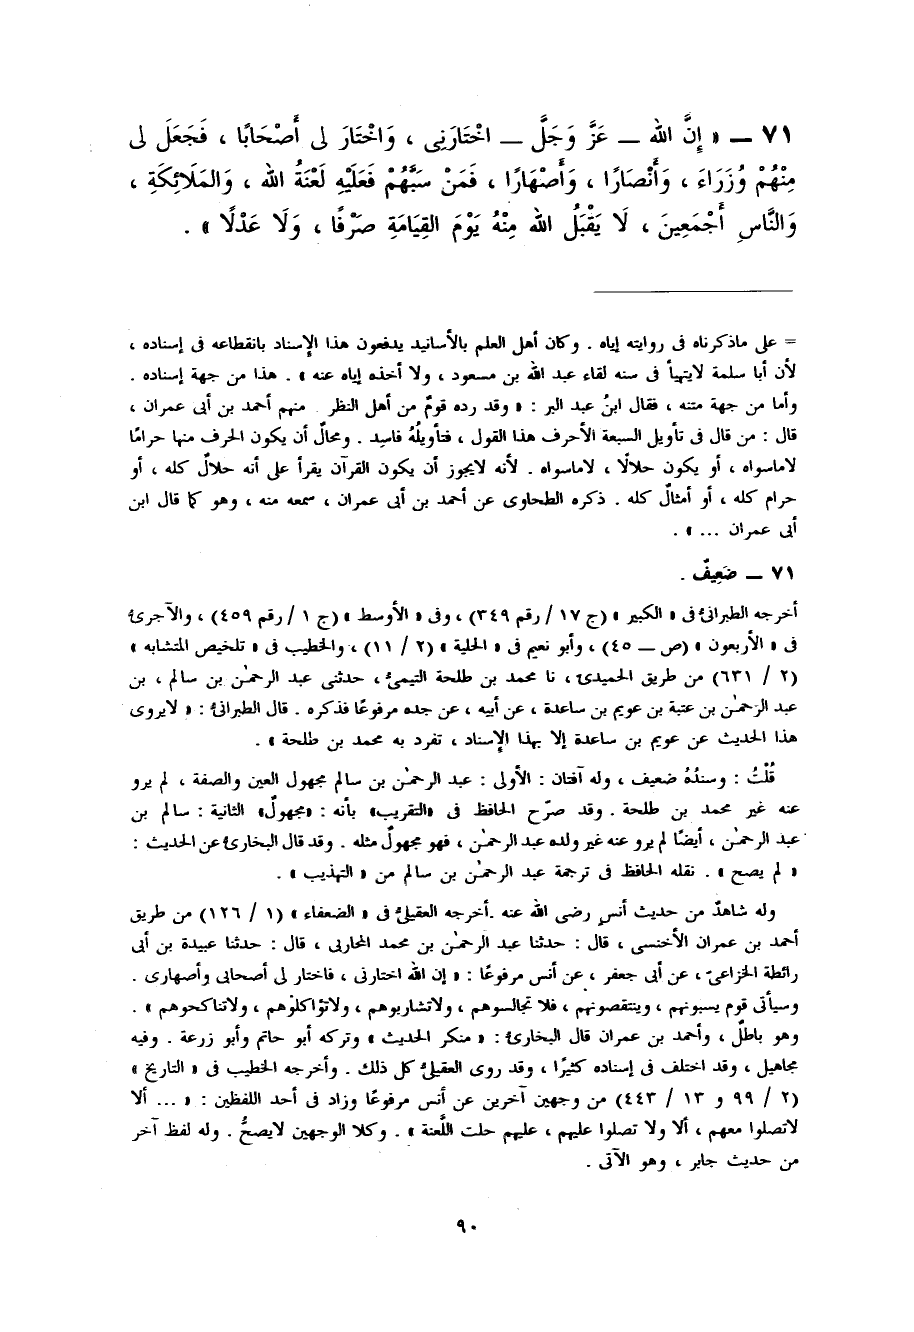 ٧١ ــ « إِنَّ الله ــ عَزَّ وَجَلَّ ــ اخْتَارَنِى ، وَاخْتَارَ لِى أَصْحَابًا ، فَجَعَلَ لِى
مِنْهُمْ وُزَرَاءَ ، وَأَنْصَارًا ، وَأَصْهَارًا ، فَمَنْ سَبَّهُمْ فَعَلَيْهِ لَعْنَةُ الله ، وَالمَلَائِكَةِ ،
وَالنَّاسِ أَجْمَعِينَ ، لَا يَقْبَلُ الله مِنْهُ يَوْمَ القِيَامَةِ صَرْفًا ، وَلَا عَدْلًا » .
= على ماذكرناه فى روايته إياه . وكان أهل العلم بالأسانيد يدفعون هذا الإسناد بانقطاعه فى إسناده ،
لأن أبا سلمة لايتهيأ فى سنه لقاء عبد الله بن مسعود ، ولا أخذه إياه عنه » . هذا من جهة إسناده .
وأما من جهة متنه ، فقال ابنُ عبد البر : « وقد رده قومٌ من أهل النظر منهم أحمد بن أبى عمران ،
قال : من قال فى تأويل السبعة الأحرف هذا القول ، فتأويلُهُ فاسِد . ومحالٌ أن يكون الحرف منها حرامًا
لاماسواه ، أو يكون حلالًا ، لاماسواه . لأنه لايجوز أن يكون القرآن يقرأ على أنه حلالٌ كله ، أو
حرام كله ، أو أمثالٌ كله . ذكره الطحاوى عن أحمد بن أبى عمران ، سمعه منه ، وهو كما قال ابن
أبى عمران ... » .
٧١ ــ ضَعِيفٌ .
أخرجه الطبرانىُّ فى « الكبير » (ج ١٧ / رقم ٣٤٩) ، وفى « الأوسط » (ج ١ / رقم ٤٥٩) ، والآجرىُّ
فى « الأربعون » (ص ــ ٤٥) ، وأبو نعيم فى « الحلية » (٢ / ١١) ، والخطيب فى « تلخيص المتشابه »
(٢ / ٦٣١) من طريق الحميدىّ ، نا محمد بن طلحة التيمىُّ ، حدثنى عبد الرحمٰن بن سالم ، بن
عبد الرحمٰن بن عتبة بن عويم بن ساعدة ، عن أبيه ، عن جده مرفوعًا فذكره . قال الطبرانىُّ : « لايروى
هذا الحديث عن عويم بن ساعدة إلا بهذا الإسناد ، تفرد به محمد بن طلحة » .
قُلْتُ : وسندُهُ ضعيف ، وله آفتان : الأولى : عبد الرحمٰن بن سالم مجهول العين والصفة ، لم يرو
عنه غير محمد بن طلحة . وقد صرّح الحافظ فى «التقريب» بأنه : «مجهولٌ» الثانية : سالم بن
عبد الرحمٰن ، أيضًا لم يرو عنه غير ولده عبد الرحمٰن ، فهو مجهولٌ مثله . وقد قال البخارىُّ عن الحديث :
« لم يصح » . نقله الحافظ فى ترجمة عبد الرحمٰن بن سالم من « التهذيب » .
وله شاهدٌ من حديث أنسٍ رضى الله عنه .أخرجه العقيلىُّ فى « الضعفاء » (١ / ١٢٦) من طريق
أحمد بن عمران الأخنسى ، قال : حدثنا عبد الرحمٰن بن محمد المحاربى ، قال : حدثنا عبيدة بن أبى
رائطة الخزاعىّ ، عن أبى جعفر ، عن أنس مرفوعًا : « إن الله اختارنى ، فاختار لى أصحابى وأصهارى .
وسيأتى قوم يسبونهم ، وينتقصونهم ، فلا تجالسوهم ، ولاتشاربوهم ، ولاتؤاكلوهم ، ولاتناكحوهم » .
وهو باطلٌ ، وأحمد بن عمران قال البخارىُّ : « منكر الحديث » وتركه أبو حاتم وأبو زرعة . وفيه
مجاهيل ، وقد اختلف فى إسناده كثيرًا ، وقد روى العقيلىُّ كل ذلك . وأخرجه الخطيب فى « التاريخ »
(٢ / ٩٩ و ١٣ / ٤٤٣) من وجهين آخرين عن أنس مرفوعًا وزاد فى أحد اللفظين : « ... ألا
لاتصلوا معهم ، ألا ولا تصلوا عليهم ، عليهم حلت اللَّعنة » . وكلا الوجهين لايصحُّ . وله لفظ آخر
من حديث جابر ، وهو الآتى .
٩٠